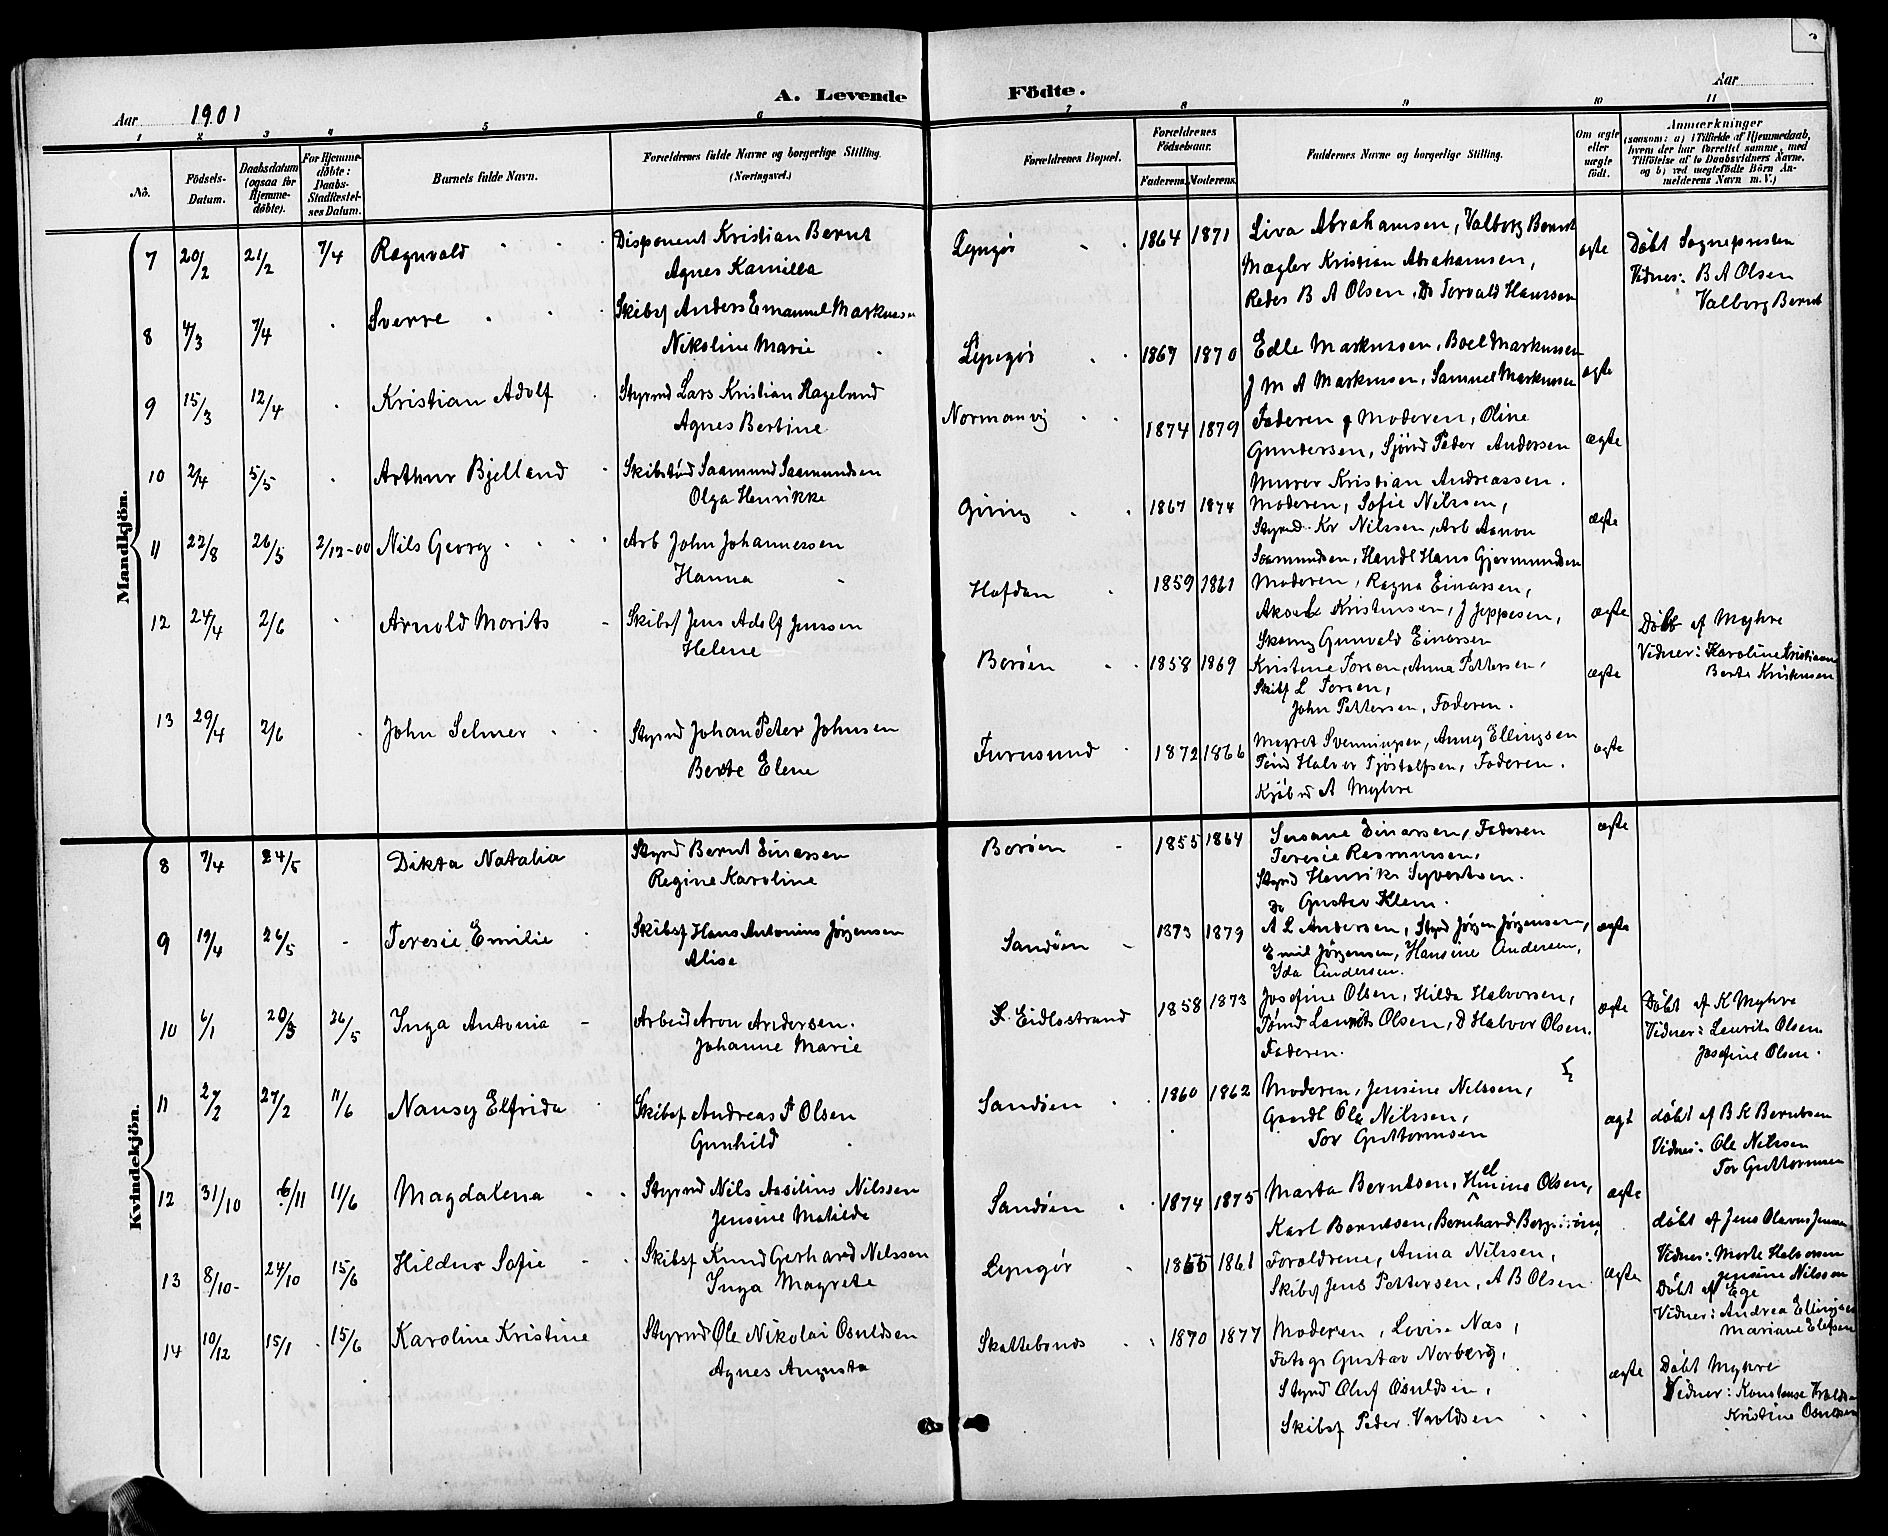 Aar 1901
A. Levende Födte.
Aar
1 2 3 4 5 6 7 8 9 10 11
No.
Födsels-Datum.
Daabsdatum (ogsaa for Hjemmedøbte).
For Hjemmedøbte: Daabs-Stadfæstelses Datum.
Barnets fulde Navn.
Forældrenes fulde Navne og borgerlige Stilling.
(Næringsvei.)
Forældrenes Bopæl.
Forældrenes Födselsaar.
Faderens. Moderens.
Faddernes Navne og borgerlige Stilling.
Om ægte eller uægte født.
Anmærkninger
(saasom: a) i Tilfælde af Hjemmedaab, hvem der har forrettet samme, med Tilföielse af to Daabsvidners Navne, og b) ved uægtefödte Börn Anmelderens Navn m. V.)
Mandkjön.
7 20/2 21/2 7/4 Ragnvald Disponent Kristian Bernt
Agnes Kamilla
Lyngör 1864 1871 Liva Abrahamsen, Valborg Bernt
Mægler Kristian Abrahamsen,
Reder B A Olsen, Do Torvald Hanssen
ægte
Døbt Sognepresten
Vidner: B A Olsen
Valborg Bernt
8 4/3 7/4 Sverre Skibsf Anders Emanuel Markussen
Nikoline Marie
Lyngör 1867 1870 Edle Markussen, Boel Markussen
J M A Markussen, Samuel Markussen
ægte
9 15/3 12/4 Kristian Adolf Styrmd Lars Kristian Hagelund
Agnes Bertine
Normanvig 1874 1879 Faderen & Moderen, Oline
Gundersen, Sjömd Peder Andersen
Murer Kristian Andreassen.
ægte
10 2/4 5/5 Arthur Bjelland Skibstömd Saamund Saamundsen
Olga Henrikke
Giving 1867 1874 Moderen, Sofie Nilssen,
Styrmd Kr Nilssen, Arb Aanon
Saamundsen, Handl Hans Gjermundsen
ægte
11 22/8 26/5 2/12-00 Nils Georg Arb John Johannessen
Hanna
Hafdan 1859 1861 Moderen, Ragna Einarsen,
Aksel Kristensen, J Jeppesen,
Skomg Gunvald Einarsen
ægte
12 24/4 2/6 Arnold Morits Skibsf Jens Adolf Jenssen
Helene
Borøen 1858 1869 Kristine Torsen, Anna Pettersen,
Skibsf L Torsen,
John Pettersen, Faderen.
ægte
Döbt af Myhre
Vidner: Karoline Kristiansen
Berte Kristensen
13 29/4 2/6 John Selmer Styrmd Johan Peter Johnsen
Berte Elene
Furusund 1872 1866 Magret Svenningsen, Anny Ellingsen
Tömd Halvor Tjöstolfsen, Faderen.
Kjöbmd A Myhre
ægte
Kvindekjön.
8 7/4 24/5 Dikta Natalia Styrmd Bernt Einarsen
Regine Karoline
Borøen 1855 1864 Susane Einarsen, Faderen
Teresie Rasmussen,
Styrmd Henrik Syvertsen.
Do Gustav Klem.
ægte
9 19/4 26/5 Teresie Emilie Skibsf Hans Antonius Jörgensen
Alise
Sandøen 1873 1879 A L Andersen, Styrmd Jörgen Jörgensen,
Emil Jörgensen, Hansine Andersen,
Yda Andersen.
ægte
10 6/1 20/3 26/5 Inga Antonia Arbeid Aron Andersen.
Johanne Marie
S. Eidlostrand 1858 1873 Josefine Olsen, Hilda Halvorsen,
Tömd Laurits Olsen, D Halvor Olsen.
Faderen.
ægte
Döbt af K Myhre
Vidner: Laurits Olsen
Josefine Olsen.
11 27/2 27/2 11/6 Nansy Elfrida Skibsf Andreas F Olsen
Gunhild
Sandøen 1860 1862 Moderen, Jensine Nilssen,
Gaardl Ole Nilssen,
Tor Guttormsen
ægt
döbt af B K Berntsen
Vidner: Ole Nilssen
Tor Guttormsen
12 31/10 6/11 11/6 Magdalena Styrmd Nils Assilius Nilssen
Jensine Matilde
Sandøen 1874 1875 Marta Berntsen, Helmine Olsen,
Karl Berntsen, Bernhard Bergström,
ægte
döbt af Jens Olavus Jensen
Vidner: Marte Halvorsen
Jensine Nilssen
13 8/10 24/10 15/6 Hildur Sofie Skibsf Knud Gerhard Nilssen
Inga Magrete
Lyngör 1855 1861 Foraldrene, Anna Nilssen,
Skibsf Jens Pettersen, A B Olsen.
ægte
Döbt af Ege
Vidner: Andrea Ellingsen
Mariane Elefsen
14 10/12 15/1 15/6 Karoline Kristine Styrmd Ole Nikolai Osuldsen
Agnes Augusta
Skottebonds 1870 1877 Moderen, Lovise Næs,
Fotogr Gustav Norberg,
Styrmd Oluf Osuldsen,
Skibsf Peder Vroldsen
ægte
Döbt Myhre
Vidner: Konstanse Vrolds
Kristine Osuldsen